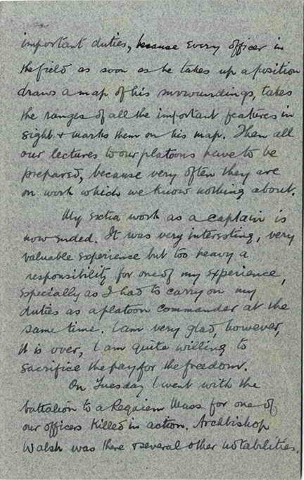 important duties, because every officer in
the field as soon as he takes up a position
draws a map of his surroundings, takes
the ranges of all the important features in
sight & marks them on his map. Then all
our lectures to our platoons have to be
prepared, because very often they are
on work which we know nothing about.
My extra work as a captain is
now ended. It was very interesting, very
valuable experience but too heavy a
responsibility for one of my experience,
especially as I had to carry on my
duties as a platoon commander at the
same time. I am very glad, however,
it is over, I am quite willing to
sacrifice the pay for the freedom.
On Tuesday I went with the
battalion to a Requiem Mass for one of
our officers killed in action. Archbishop
Walsh was there & several other notabilities.